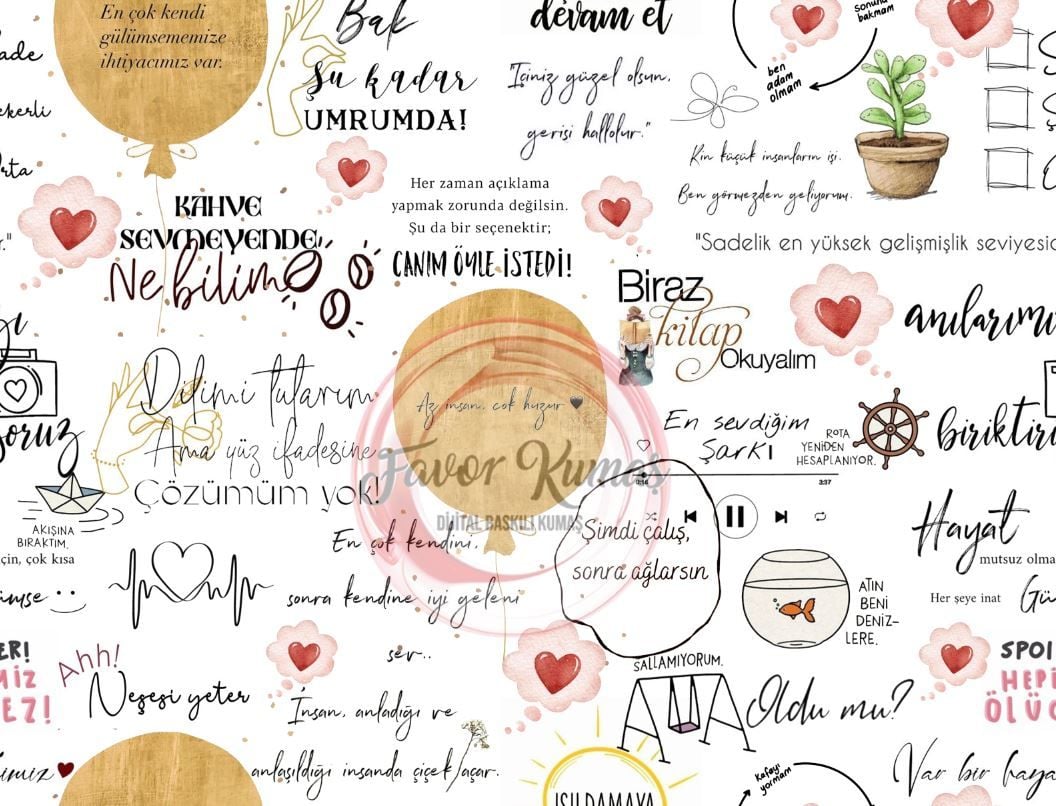 En çok kendi
gülümsememize
ihtiyacımız var.
Bak
Şu kadar
UMRUMDA!
devam et
"İçiniz güzel olsun,
gerisi hallolur."
sonuna
bakmam
ben
adam
olmam
Kin küçük insanların işi.
Ben görmezden geliyorum.
KAHVE
SEVMEYENDE
Ne bilim
Her zaman açıklama
yapmak zorunda değilsin.
Şu da bir seçenektir;
CANIM ÖYLE İSTEDİ!
"Sadelik en yüksek gelişmişlik seviyesi
Biraz
kitap
Okuyalım
anılarımı
biriktiri
Dilimi tutarım
Ama yüz ifadesine
Çözümüm yok!
Az insan, çok huzur
Favor Kumaş
DİJİTAL BASKILI KUMAŞ
En sevdiğim
Şarkı
ROTA
YENİDEN
HESAPLANIYOR.
3:37
AKIŞINA
BIRAKTIM.
çin, çok kısa
En çok kendini,
sonra kendine iyi geleni
sev..
Şimdi çalış,
sonra ağlarsın
ATIN
BENİ
DENİZ-
LERE.
Hayat
mutsuz olma
Her şeye inat
Ahh!
Neşesi yeter
İnsan, anladığı ve
anlaşıldığı insanda çiçek açar.
SALLAMIYORUM.
Oldu mu?
SPOI
HEPİ
ÖLÜC
Var bir haya
Kafayı
yormam
IŞILDAMAYA